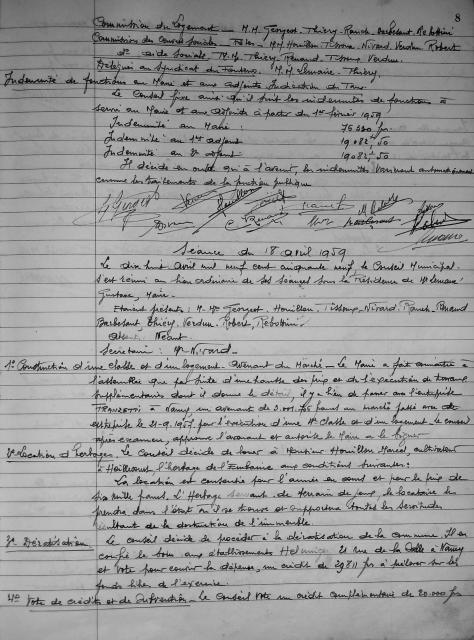 8
Commission du Logement - M.M. Georget - Thiéry - Rauch - Barbesant - Rebottini
Commission des Secours Sociales - Fêtes - M.M. Houillon Tissoux, Nivard Verdun, Robert
et aide Sociale. M.M. Thiéry, Renaud, Tissoux Verdun.
Délégués au Syndicat du M.M. Lemaire - Thiéry.
Indemnité de fonctions au Maire et aux adjoints Indication du Taux
Le Conseil fixe ainsi qu'il suit les indemnités de fonction à
servir au Maire et aux adjoints à partir du 1er février 1959
Indemnité au Maire : 76.330 frs
Indemnité au 1er adjoint 19.082,50
Indemnité au 2e adjoint 19.082,50
Il décide en outre qu'à l'avenir, les indemnités varieront automatiquement
comme les traitements de la fonction publique
Séance du 18 avril 1959
Le dix huit avril mil neuf cent cinquante neuf le Conseil Municipal
s'est réuni au lieu ordinaire de ses séances sous la Présidence de Mr Lemaire
Gustave, Maire.
Etaient présents : M. Mrs Georget, Houillon, Tissoux, Nivard, Rauch, Renaud
Barbesant, Thiéry, Verdun, Robert, Rebottini
Absent : Néant
Secrétaire : Mr Nivard
1° Construction d'une classe et d'un logement. Avenant du Marché - Le Maire a fait connaître à
l'assemblée que par suite d'une hausse des prix et de l'exécution de travaux
supplémentaires dont il donne le détail, il y a lieu de passer avec l'entreprise
TRANZETTI à Nancy, un avenant de 3.001.705 francs au marché passé avec cette
entreprise le 21-9-1957 pour l'exécution d'une classe et d'un logement. Le conseil
après examen, approuve l'avenant et autorise le Maire à le signer
2° Location d'herbages. Le Conseil décide de louer à Monsieur Houillon Marcel, cultivateur
à Heillecourt, l'herbage de l'Embanie aux conditions suivantes :
La location est consentie pour l'année en cours et pour le prix de
six mille francs. L'herbage servant de terrain de jeux, le locataire le
prendra dans l'état où il se trouve et supportera toutes les servitudes
résultant de la destruction de l'immeuble.
3° Dératisation. Le conseil décide de procéder à la dératisation de la commune. Il en
confie le soin aux établissements 21 rue de la Salle à Nancy
et vote pour couvrir la dépense, un crédit de 29811 frs à prélever sur les
fonds libres de l'exercice.
4° Vote de crédits et de Subvention - Le Conseil vote un crédit complémentaire de 20.000 frs